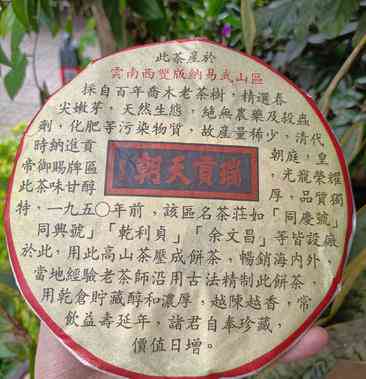 此茶產於
雲南西雙版納易武山區
採自百年喬木老茶樹,精選春
尖嫩芽,天然生態,絕無農藥及殺蟲
劑,化肥等污染物質,故產量稀少,清代
時納進貢朝庭,皇
帝御賜牌區,光龍榮耀
此茶味甘醇厚,品質獨
瑞貢天朝
特,一九五〇年前,該區名茶莊如「同慶號」
「同興號」「乾利貞」「余文昌」等皆設廠
於此,用此高山茶壓成餅茶,暢銷海內外
當地經驗老茶師沿用古法精制此餅茶,
用乾倉貯藏醇和濃厚,越陳越香,常
飲益壽延年,諸君自奉珍藏,
價值日增。